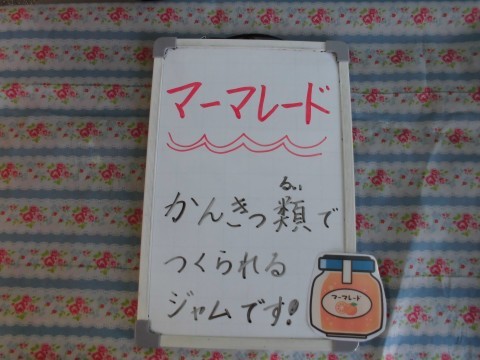 マーマレード
るい
かんきつ類で
つくられる
ジャムです!
マーマレード